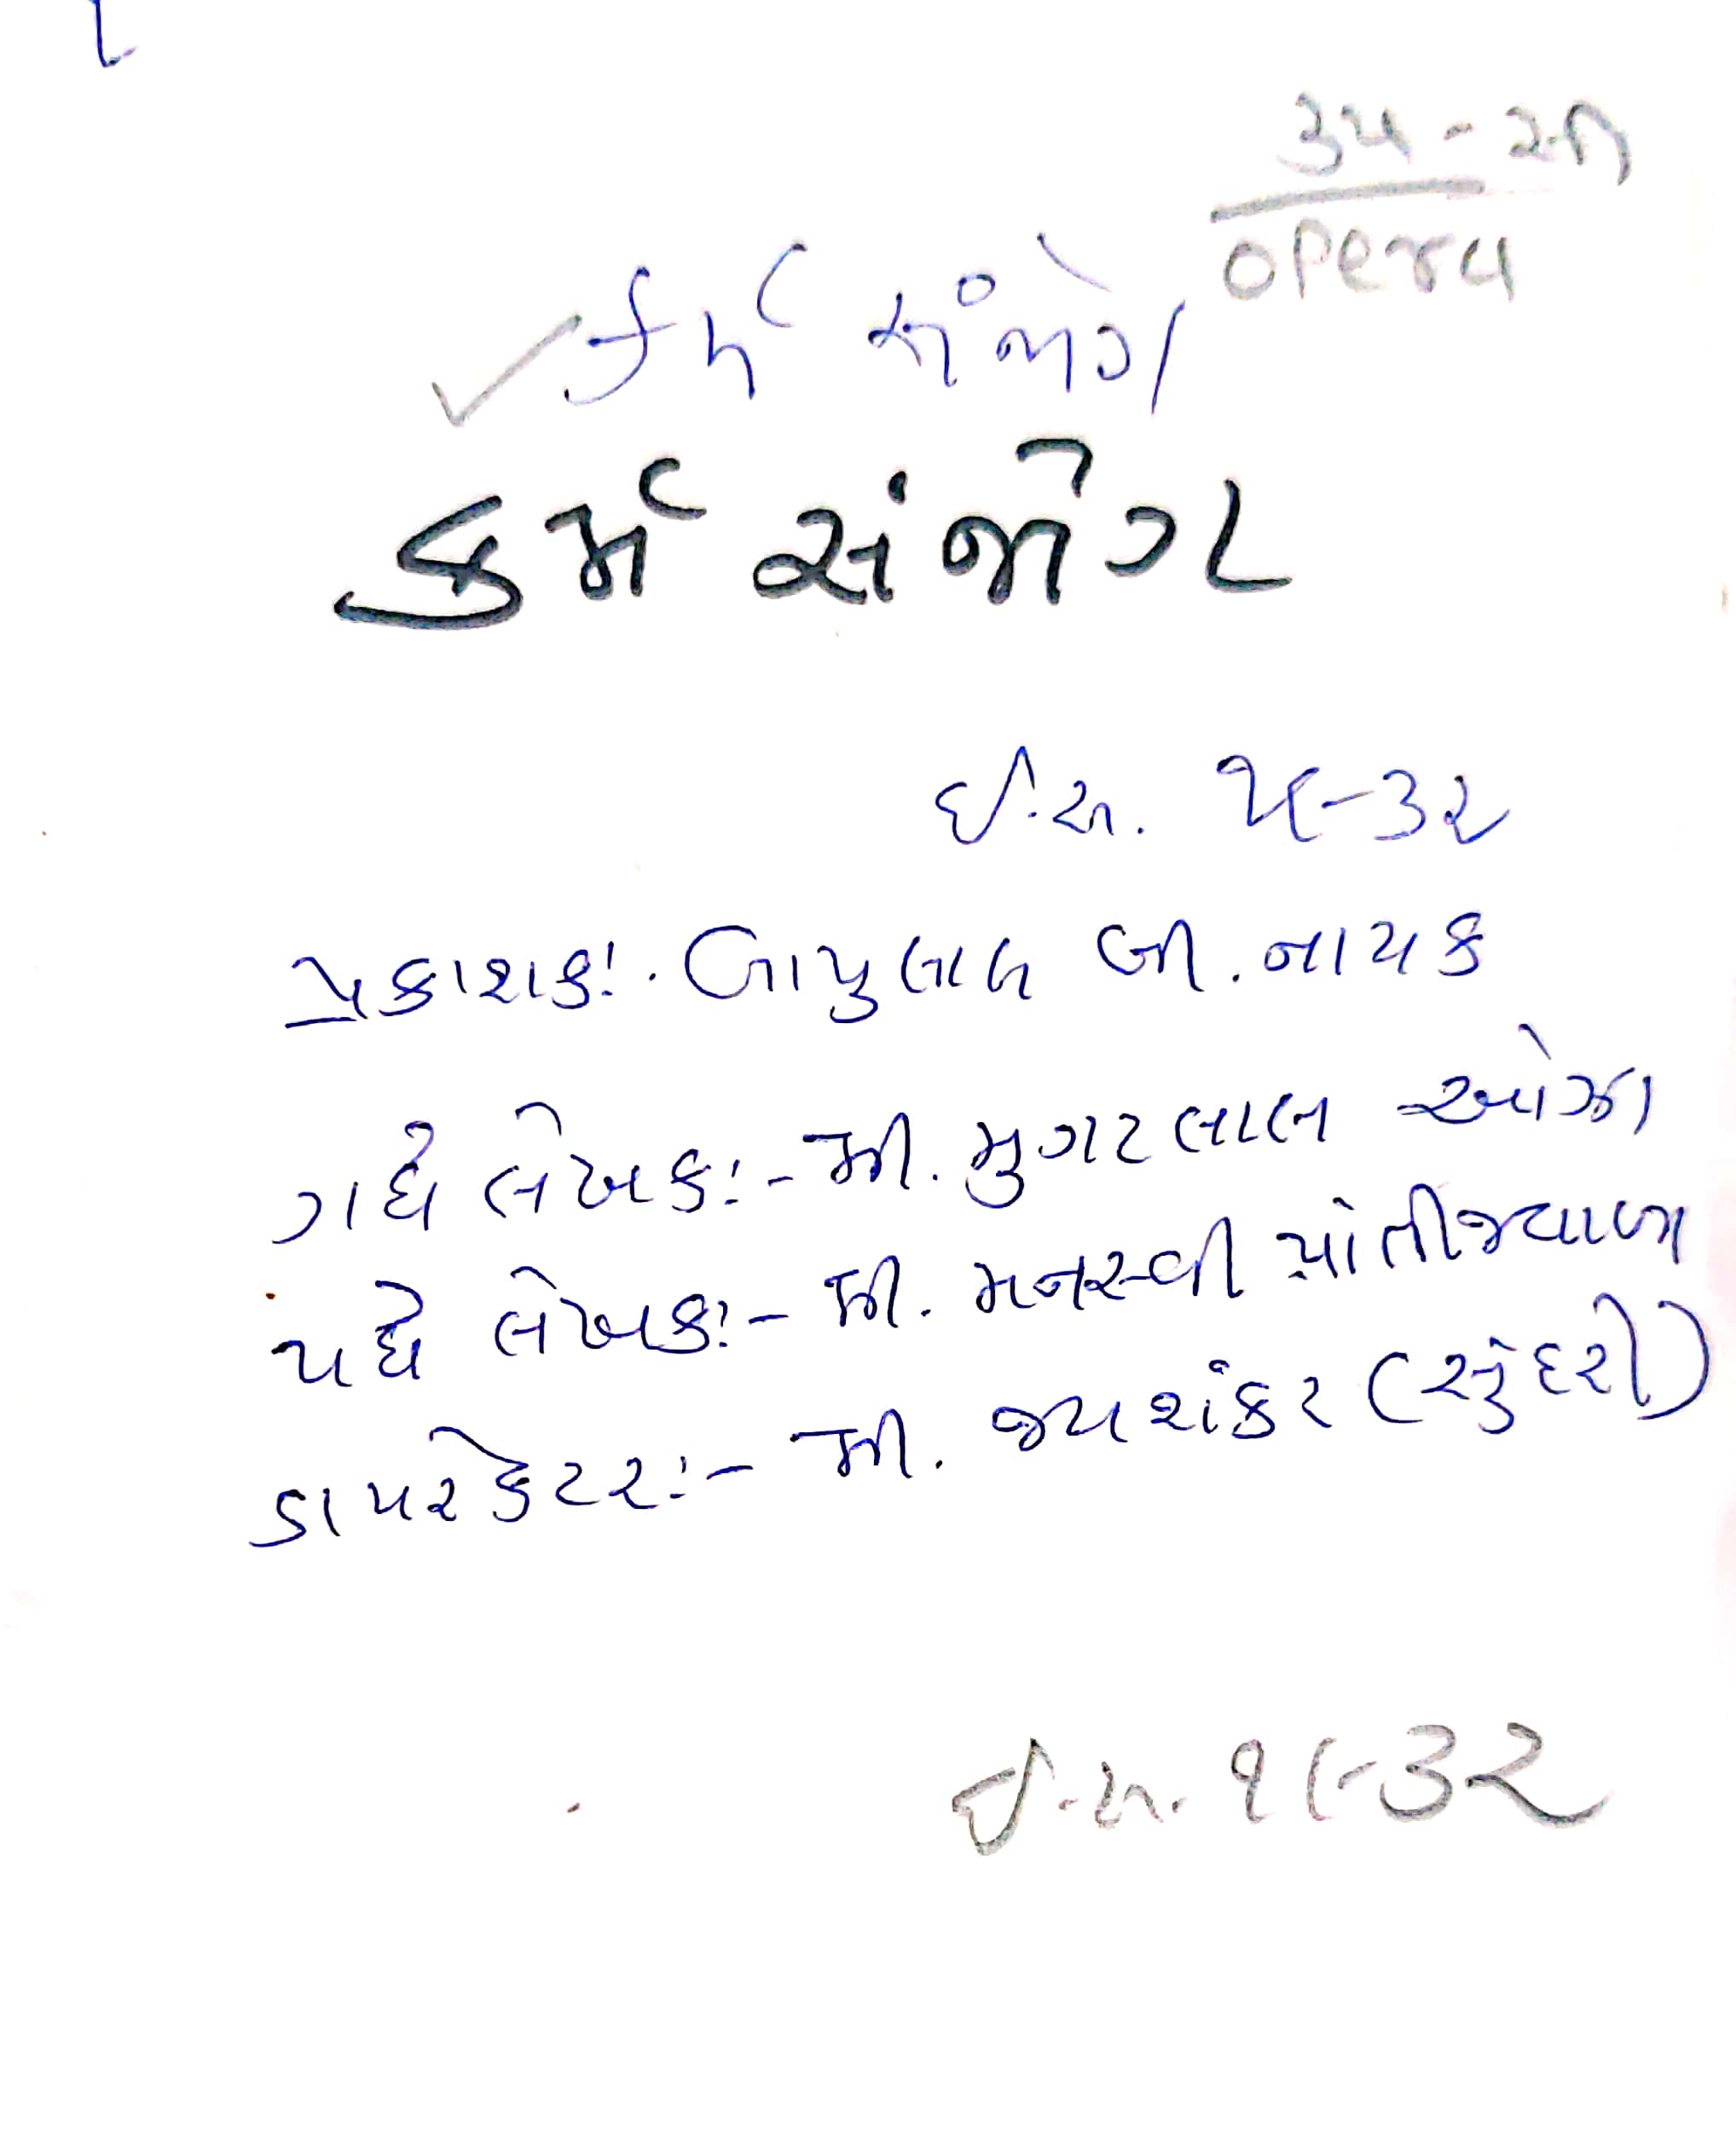 ૩૫-સી
opera
કર્મ સંજોગ
કર્મ સંજોગ
ઈ.સ. ૧૯-૩૨
પ્રકાશકઃ. બાપુલાલ બી. નાયક
ગદ્ય લેખકઃ- શ્રી. મુગટલાલ ઓઝા
પદ્ય લેખકઃ- શ્રી. મનસ્વી પ્રાંતીજવાળા
ડાયરેકટરઃ- શ્રી. જયશંકર (સુંદરી)
ઈ.સ. ૧૯-૩૨